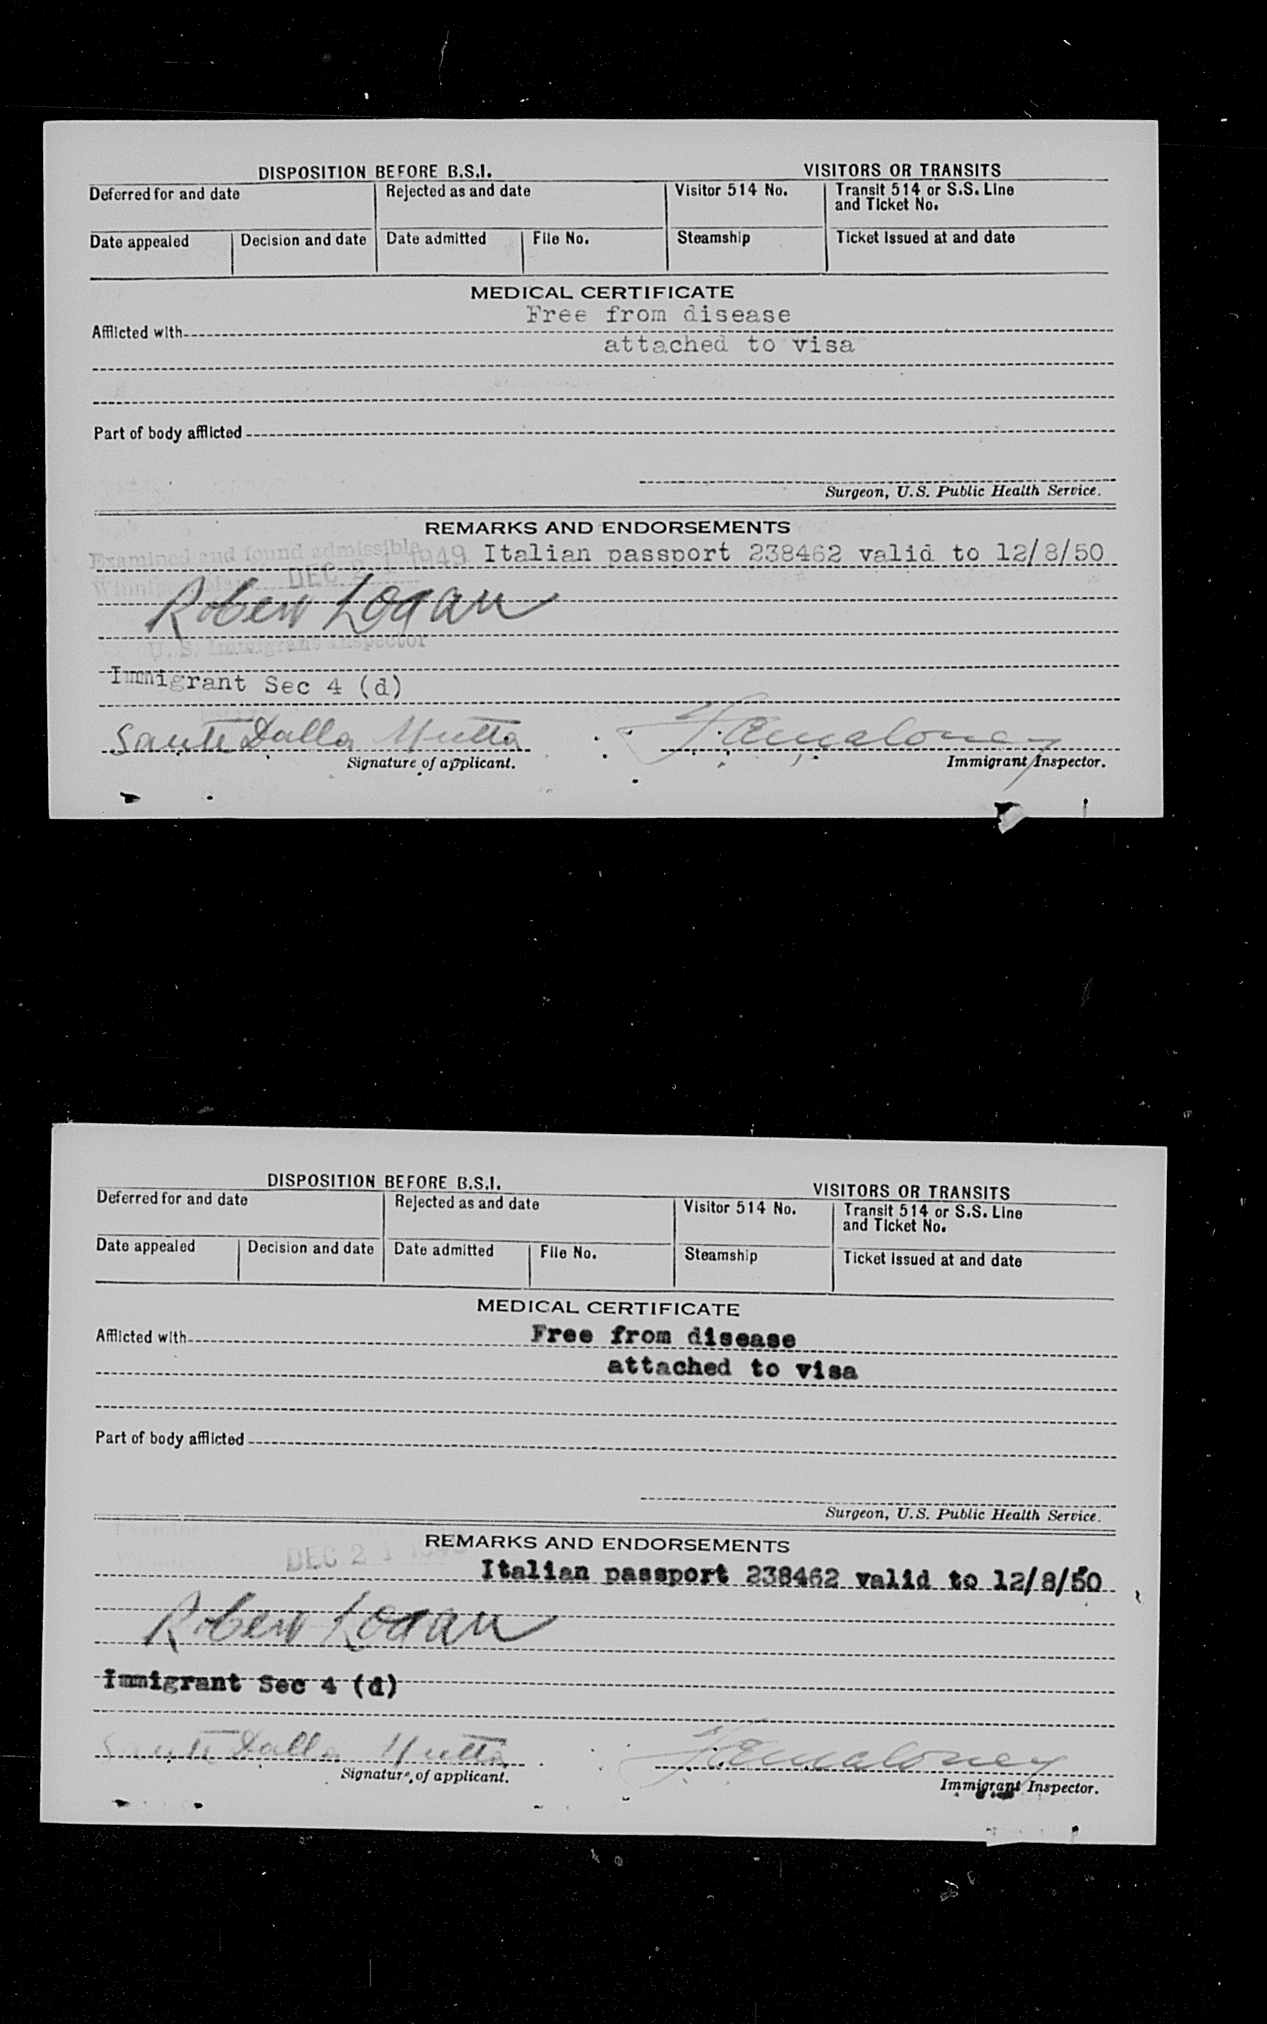 DISPOSITION BEFORE B.S.I. VISITORS OR TRANSITS
Deferred for and date Rejected as and date Visitor 514 No. Transit 514 or S.S. Line
and Ticket No.
Date appealed Decision and date Date admitted File No. Steamship Ticket Issued at and date
MEDICAL CERTIFICATE
Free from disease
Afflicted with
attached to visa
Part of body afflicted
Surgeon, U.S. Public Health Service.
REMARKS AND ENDORSEMENTS
Examined and found admissible
Italian passport 238462 valid to 12/8/50
DEC 21 1949
Robert Logan
U. S. Immigrant Inspector
Immigrant Sec 4 (d)
Sante Dalla Mutta
Signature of applicant. Immigrant Inspector.
DISPOSITION BEFORE B.S.I. VISITORS OR TRANSITS
Deferred for and date Rejected as and date Visitor 514 No. Transit 514 or S.S. Line
and Ticket No.
Date appealed Decision and date Date admitted File No. Steamship Ticket Issued at and date
MEDICAL CERTIFICATE
Afflicted with Free from disease
attached to visa
Part of body afflicted
Surgeon, U.S. Public Health Service.
REMARKS AND ENDORSEMENTS
DEC 21
Italian passport 238462 valid to 12/8/50
Robert Logan
Immigrant Sec 4 (d)
Sante Dalla Mutta
Signature of applicant. Immigrant Inspector.